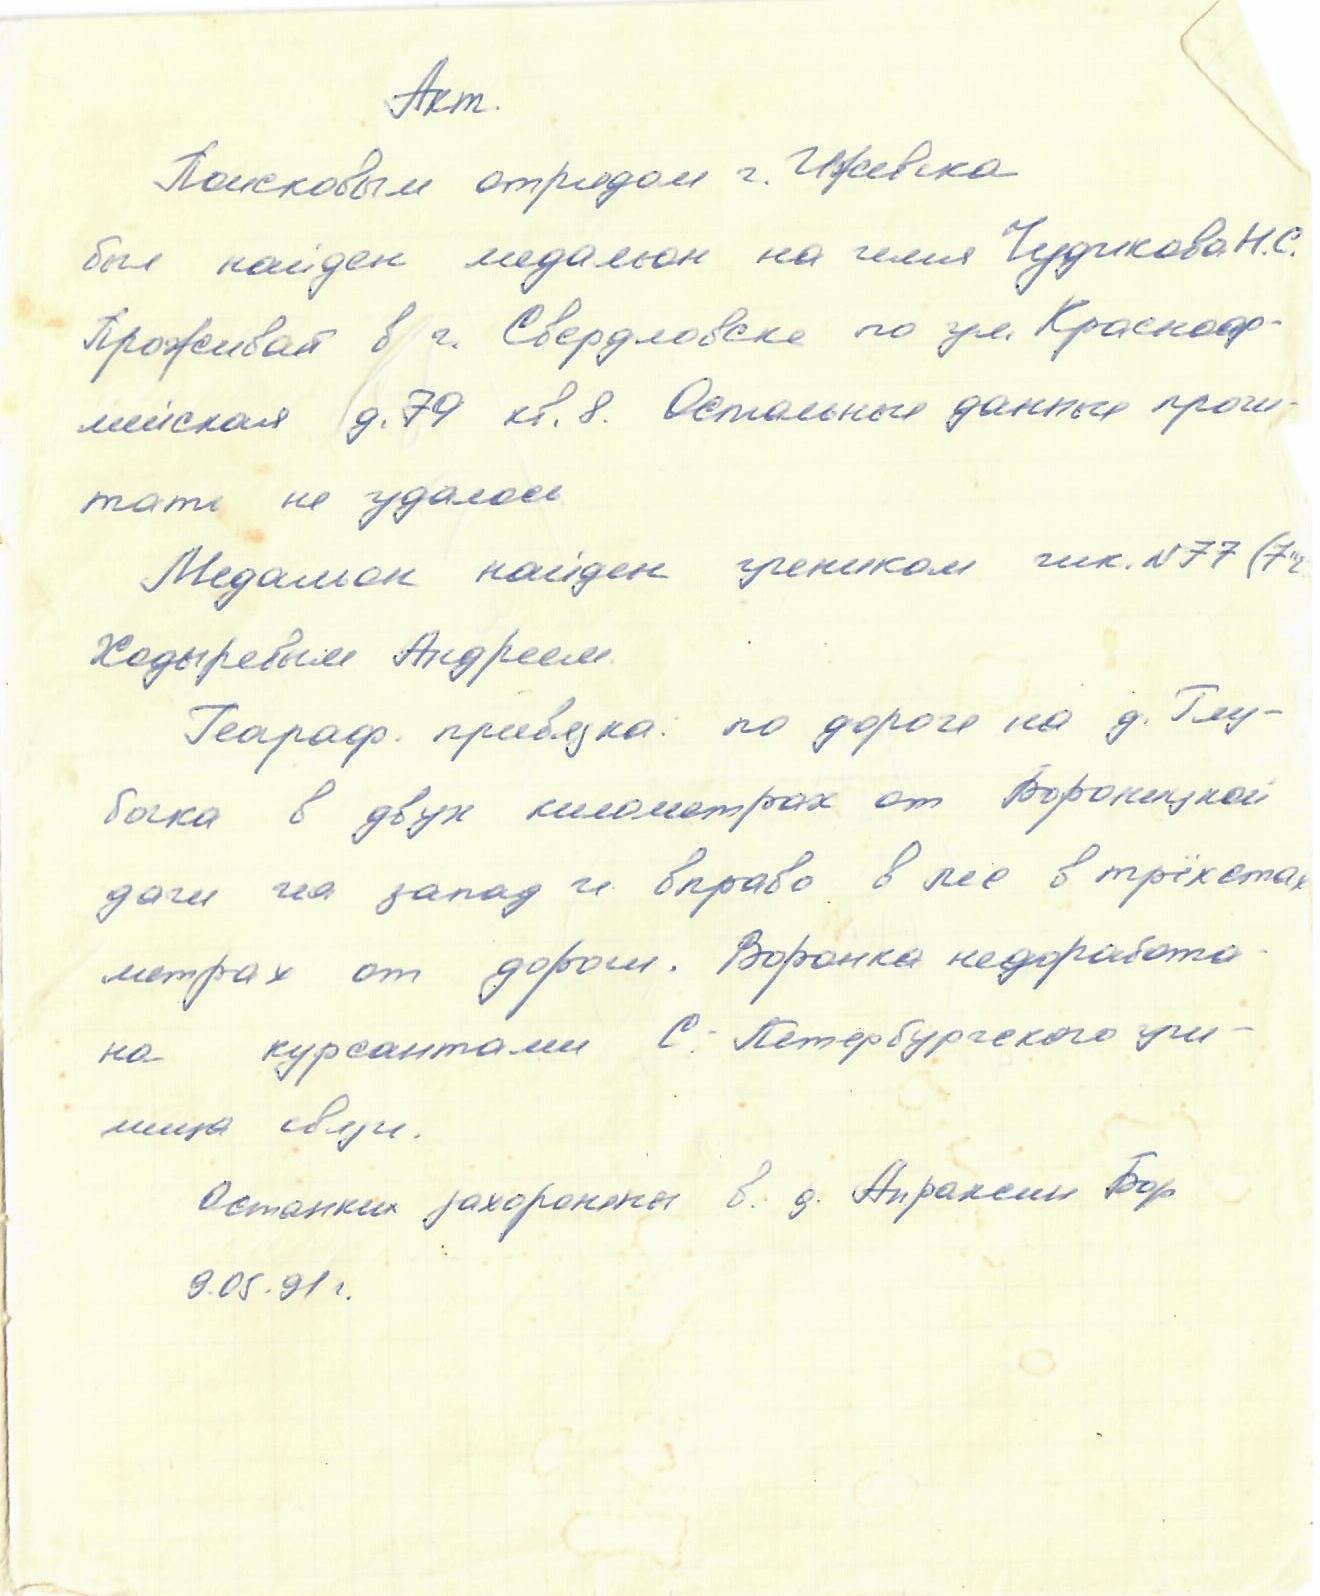 Акт.
Поисковым отрядом г. Ижевска
был найден медальон на имя Чудикова Н.С.
Проживал в г. Свердловске по ул. Красноар-
мейская д. 79 кв. 8. Остальные данные прочи-
тать не удалось
Медальон найден учеником шк. №77 (7"г
Ходыревым Андреем.
Геараф. привязка: по дороге на д. Глу-
бочка в двух километрах от Вороницкой
дачи на запад и вправо в лес в трёхстах
метрах от дороги. Воронка недоработа-
на курсантами С.-Петербургского учи-
лища связи.
Останки захоронены в. д. Апраксин Бор
9.05.91 г.